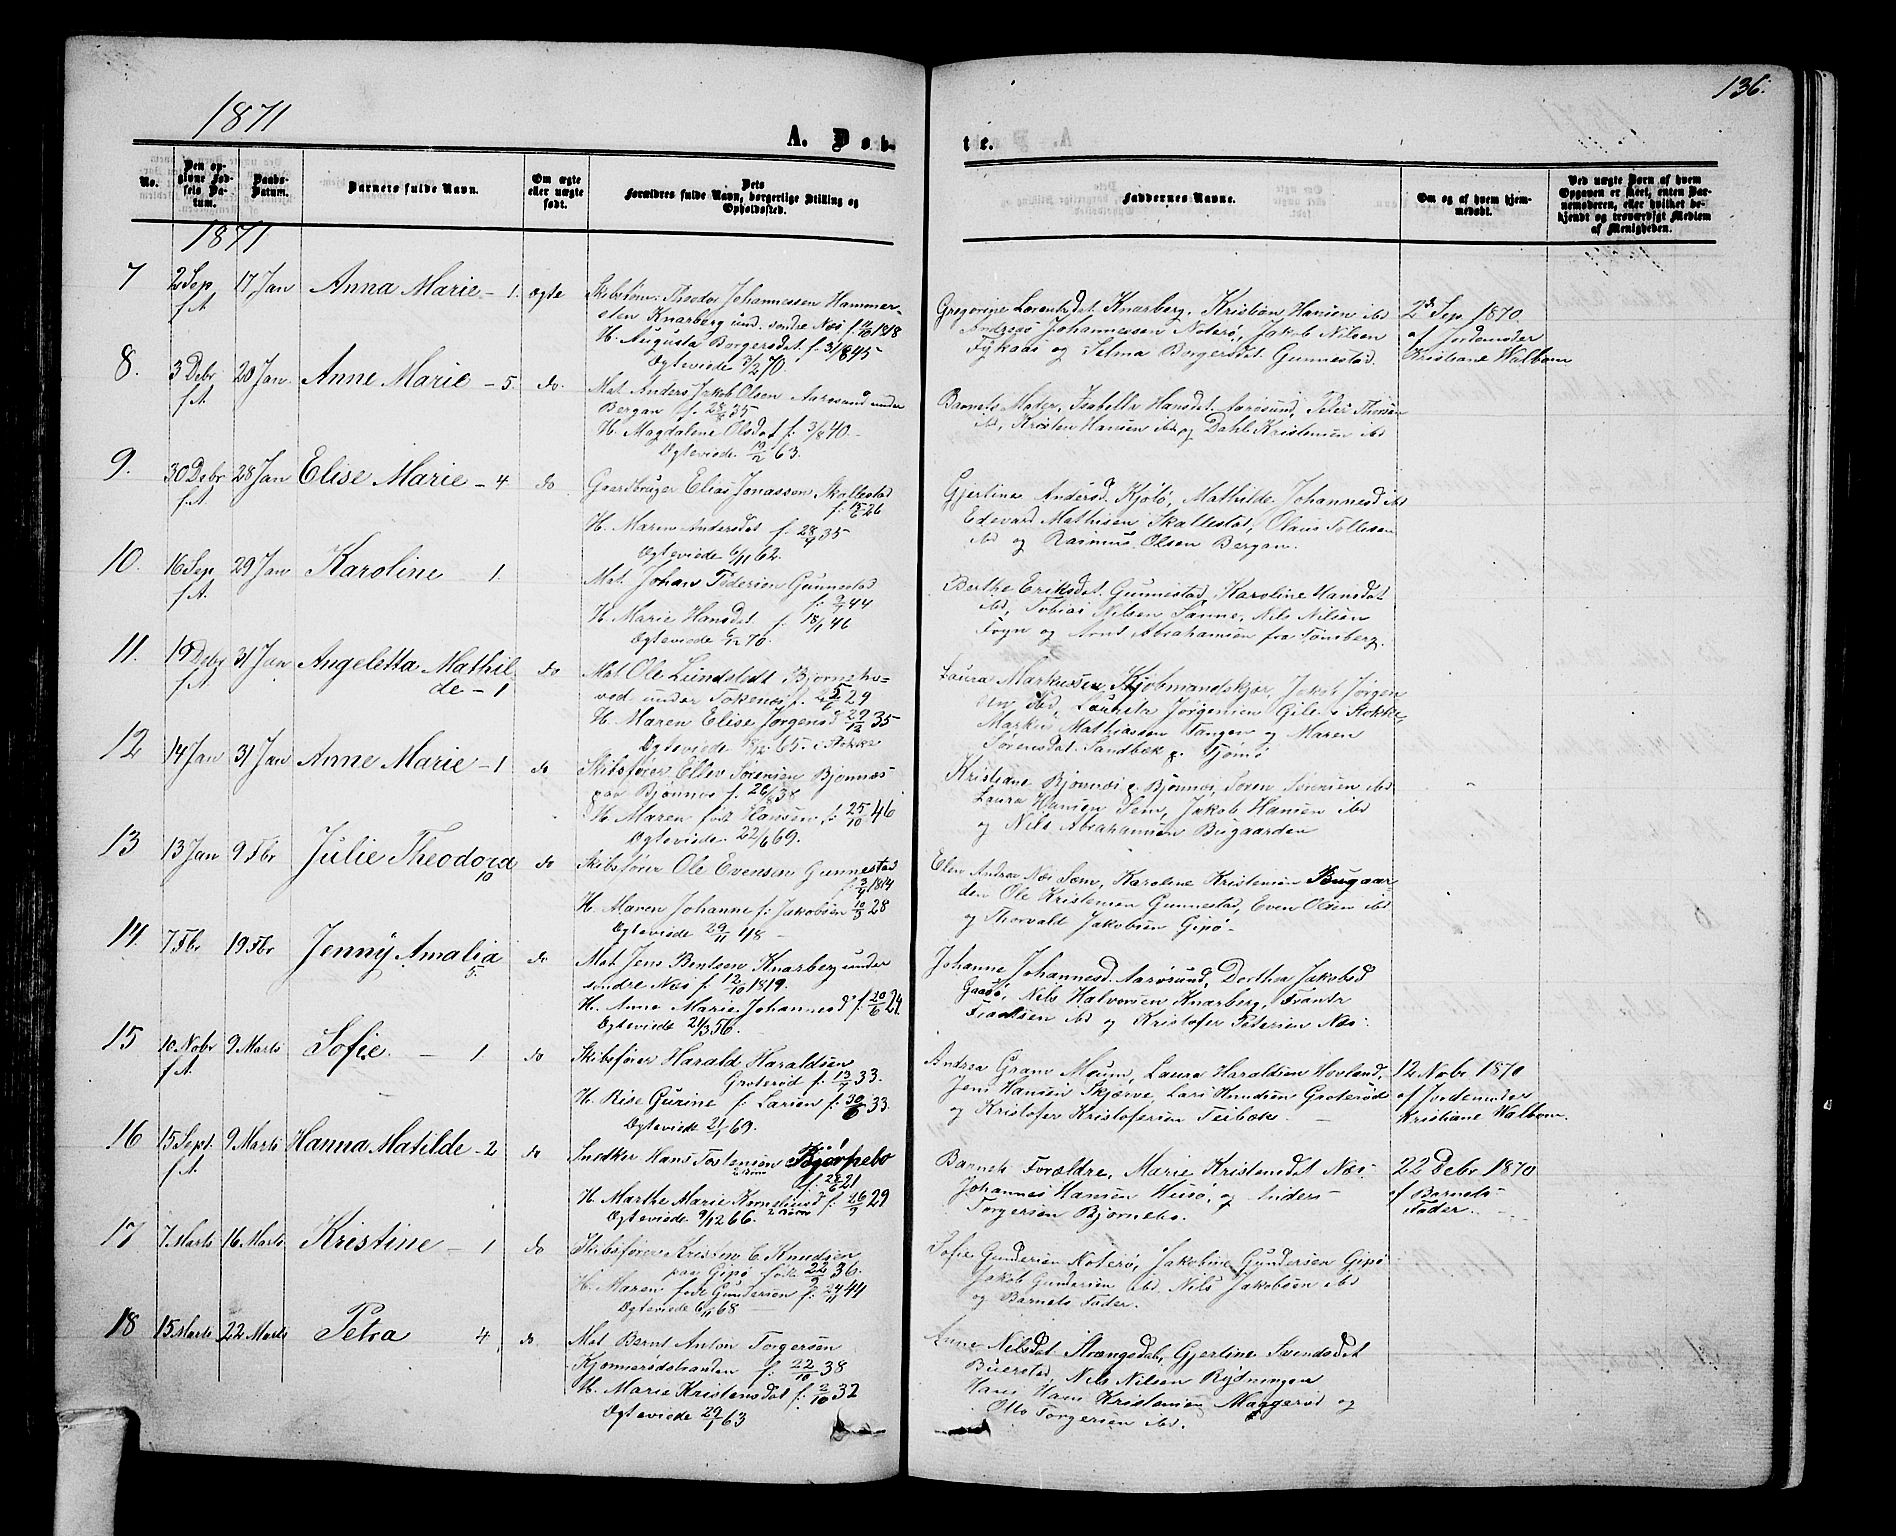 136.
1871
A. Døb-
te.
No.
Den op-
givne Fød-
sels Da-
tum.
Daabs-
Datum.
Barnets fulde Navn.
Om ægte
eller uægte
født.
Dets
Forældres fulde Navn, borgerlige Stilling og
Opholdssted.
Faddernes Navne.
Om og af hvem hjem-
medøbt.
Ved uægte Børn af hvem
Opgaven er skeet, enten Bar-
nemoderen, eller hvilket be-
kjendt og troværdigt Medlem
af Menigheden.
1871
7 2 Sep 17 Jan Anna Marie - 1. ægte
f. A.
Theodor Johannessen Hammer-
sten Knarberg und. søndre Næs
H. Augusta Borgersdat. f. 3/1 845
Ægteviede 3/2 70.
Gregorine Lorentsdat. Knarberg, Kristian Hansen ibd
Andreas Johannessen Noterø, Jakob Nilsen
og Selma Borgersdat. Gunnestad.
Sep. 1870.
af Jordemoder
Kristiane Walbom
8. 3 Debr 20 Jan Anne Marie - 5. do.
f. A.
Mat. Anders Jakob Olsen Aarøsund under
Bergan f. 35
H. Magdalene Olsdat f. 3/8 40
Ægteviede 19/2 63.
Barnets Moder, Isabella Hansdat. Aarøsund, Peter
ibd, Kristen Hansen ibd og Dahl Kristensen ibd
9. 30 Debr 28 Jan Elise Marie - 4 do
f. A.
Gaardbruger Elias Jonassen Skallestad
f. 26
H. Maren Andersdat f. 35
Ægteviede 6/11 62.
Gjertine Andersd. Kjølø, Mathilde Johannesd ibd
Edevard Mathisen Skallestad, Olaus Tollefsen
ibd og Rasmus Olsen Bergan.
10. 16 Sep 29 Jan Karoline - 1.
f. A.
Mat. Johan Pedersen Gunnestad
f. 44
H. Marie Hansdat. f. 18/1 46
Ægteviede 70.
Berthe Eriksdat. Gunnestad, Karoline Hansdat
ibd, Tobias Nilsen Sanne, Nils Nilsen
Føyn og Arnt Abrahamsen fra Tønsberg.
11. 19 Debr 31 Jan Angeletta Mathil- do
f. A. de - 1
Mat Ole Lundstedt Bjørnsho-
ved under Tokenæs f. 29
H. Maren Elise Jørgensd 29/12 35
Ægteviede 65. i Stokke
Laura Markussen, Kjøbmandskjær, Jakob Jørgen-
sen ibd, Lauritz Jørgensen Gile i Stokke,
Markus Mathiassen Tangen og Maren
Sørensdat. Sandbæk p. Tjømø
12 14 Jan 31 Jan Anne Marie - 1 do
Skibsfører Ellev Sørensen Bjønnes
paa Bjønnes f. 26/8 38
H. Maren født Hansen f. 25/10 46
Ægteviede 22/6 69.
Kristiane Bjønnes p. Bjønnes, Søren Sørensen ibd
Laura Hansen Sem, Jakob Hansen ibd
og Nils Abrahamsen Bugaarden
13 13 Jan 9 Fbr Julie Theodora do
10
Skibsfører Ole Evensen Gunnestad
f. 1814
H. Maren Johanne f: Jakobsen 10/3 28
Ægteviede 29/11 48
Elen Andrea Næs Sem, Karoline Kristensen Bugaar-
den Ole Kristensen Gunnestad, Even Olsen ibd
og Thorvalt Jakobsen Gipø.
14. 7 Fbr 19 Fbr Jenny Amalia do
5.
Mat. Jens Bentsen Knarberg under
søndre Næs f. 12/10 1819.
H. Anne Marie Johannesd f. 20/6 24
Ægteviede 24/3 56.
Johanne Johannesd. Aarøsund, Dorthea Jakobsd
Gaasø, Nils Halvorsen Knarberg, Frants
Frantsen ibd og Kristofer Petersen Næs.
15 10 Nobr 9 Marts Sofie. - 1 do
f. A.
Skibsfører Harald Haraldsen
Grøterød f. 33.
H. Rise Gurine f. Larsen f. 30/6 33.
Ægteviede 69.
Andrea Gram Moum, Laura Haraldsen Hovland,
Jens Hansen Skjærve, Lars Knudsen Grøterød
og Kristofer Kristofersen Teibæk.
12 Nobr 1870
af Jordemoder
Kristiane Walbom.
16 15 Sept. 9 Marts Hanna Matilde - 2 do
f. A.
Snedker Hans Torstensen Bjørnebo
f. 21
H. Marthe Marie Korneliusd f. 26/9 29
Ægteviede 9/12 66.
Barnets Forældre, Marie Kristensdat Næs
Johannes Hansen Husø, og Anders
Torgersen Bjørnebo.
22 Debr 1870
af Barnets
Fader.
17 7 Marts 16 Marts Kristine - 1 do
Skibsfører Kristen C. Knudsen
paa Gipø født 22/9 36.
H. Maren født Gundersen f. 24/11 44
Ægteviede 6/11 68
Sofie Gundersen Noterø, Jakobine Gundersen Gipø
Jakob Gundersen ibd, Nils Jakobsen ibd
og Barnets Fader.
18 15 Marts 22 Marts Petra 4 do
Mat Bernt Anton Torgersen
Kjønnerødstranden f. 22/10 38
H. Marie Kristensdat f. 2/10 32
Ægteviede 63
Anne Nilsdat. Strængsdal, Gjertine Svendsdat
Buerstad, Nils Nilsen Rydningen
Hans Hans Kristensen Maagerød og
Otto Torgersen ibd.